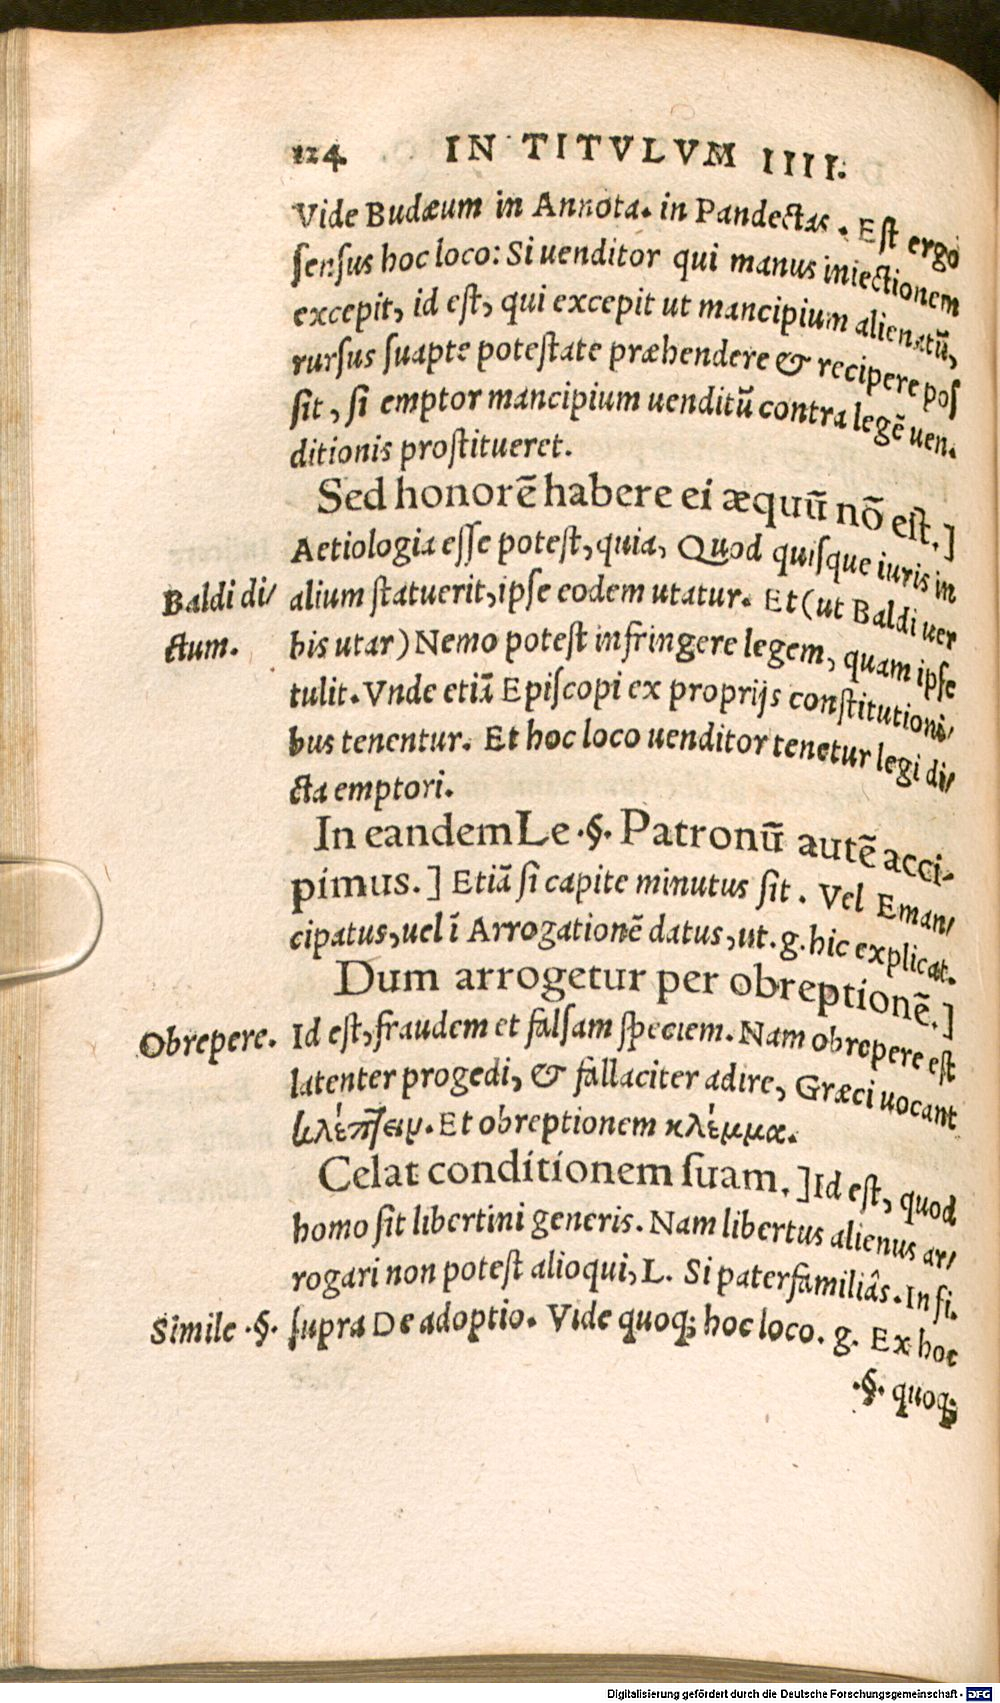 124 IN TITVLVM IIII.
Vide Budæum in Annota. in Pandectas. Est ergo
sensus hoc loco: Si uenditor qui manus iniectionem
excepit, id est, qui excepit ut mancipium alienatũ,
rursus suapte potestate præhendere & recipere pos
sit, si emptor mancipium uenditũ contra legẽ uen-
ditionis prostitueret.
Sed honorẽ habere ei æquũ nõ est.]
Aetiologia esse potest, quia, Quod quisque iuris in
Baldi di/ alium statuerit, ipse eodem utatur. Et (ut Baldi uer
ctum. bis utar) Nemo potest infringere legem, quam ipse
tulit. Vnde etiã Episcopi ex proprijs constitutioni/
bus tenentur. Et hoc loco uenditor tenetur legi di/
cta emptori.
In eandem Le .§. Patronũ autẽ acci-
pimus.] Etiã si capite minutus sit. Vel Eman/
cipatus, uel ĩ Arrogationẽ datus, ut. g. hic explicat.
Dum arrogetur per obreptionẽ.]
Obrepere. Id est, fraudem et falsam speciem. Nam obrepere est
latenter progedi, & fallaciter adire, Græci uocant
κλέπτειν. Et obreptionem κλέμμα.
Celat conditionem suam.] Id est, quod
homo sit libertini generis. Nam libertus alienus ar/
rogari non potest alioqui, L. Si paterfamiliâs. In fi.
Simile .§. supra De adoptio. Vide quoq; hoc loco. g. Ex hoc
.§. quoq;
Digitalisierung gefördert durch die Deutsche Forschungsgemeinschaft - DFG